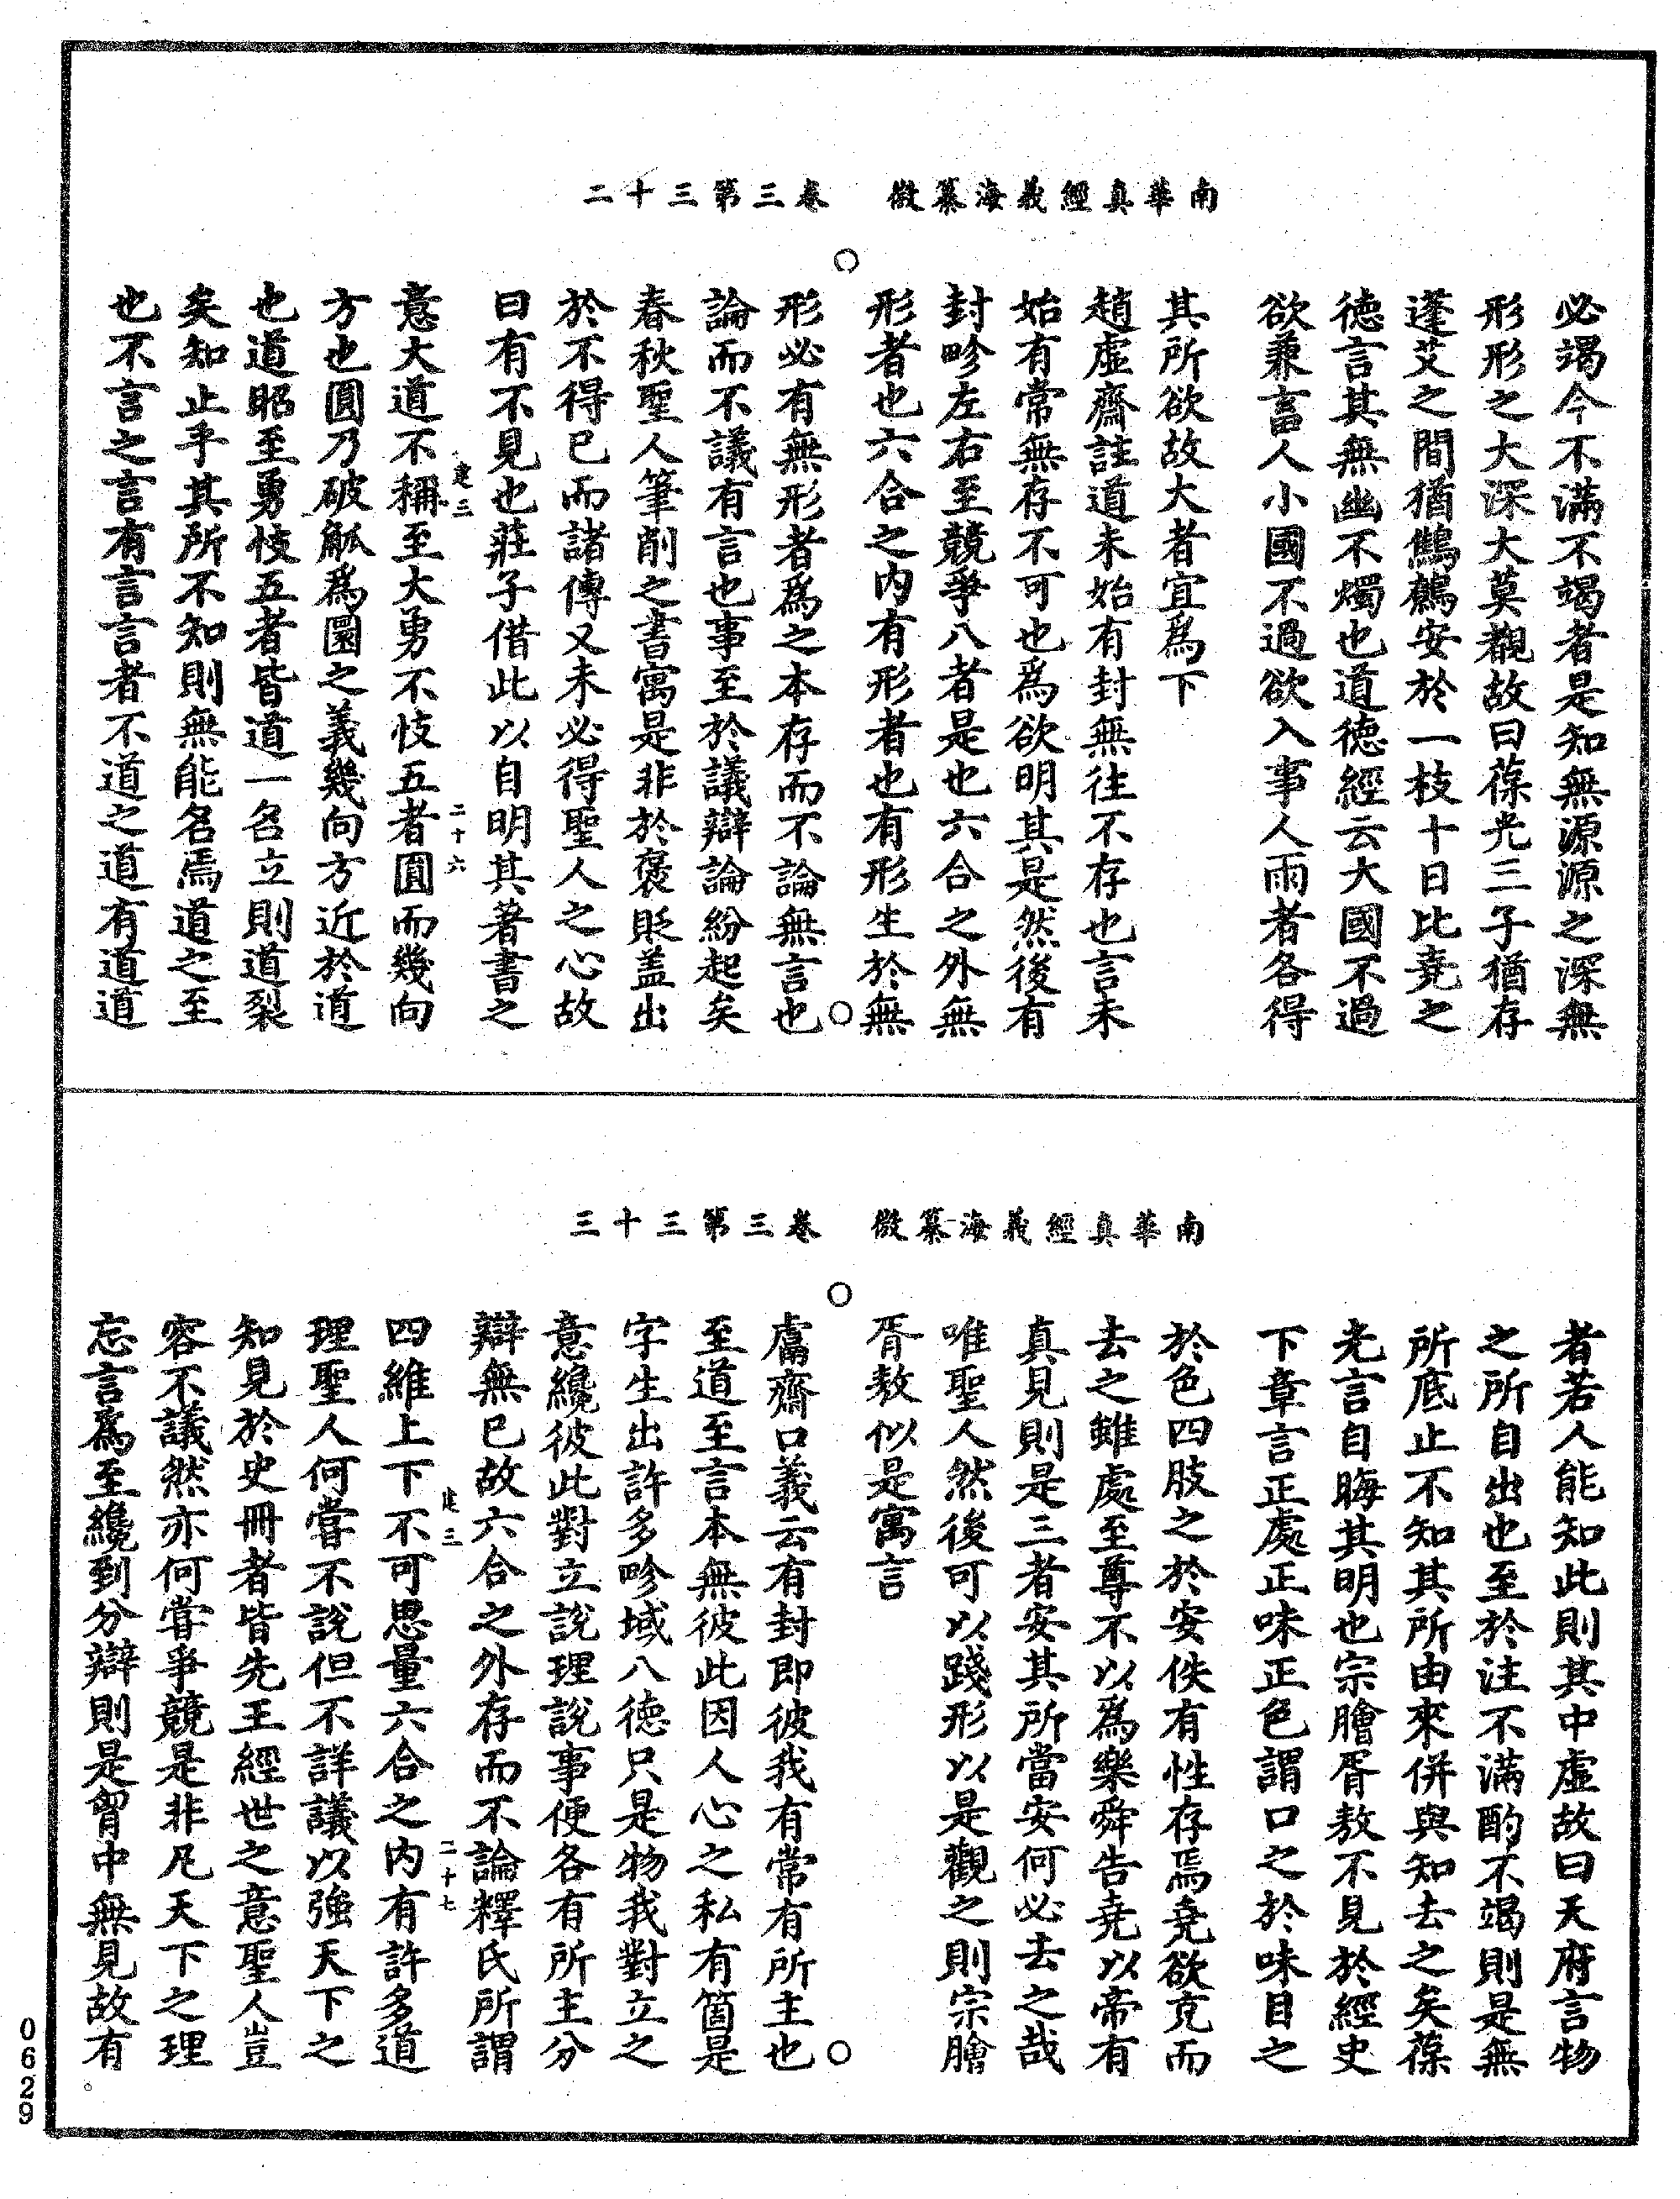 南華真經義海纂微　卷三第三十二
必竭今不滿不竭者是知無源源之深無
形形之大深大莫覩故曰葆光三子猶存
蓬艾之間猶鷦鷯安於一枝十日比堯之
德言其無幽不燭也道德經云大國不過
欲兼畜人小國不過欲入事人兩者各得
其所欲故大者宜爲下
趙虛齋註道未始有封無往不存也言未
始有常無存不可也爲欲明其是然後有
封畛左右至競爭八者是也六合之外無
形者也六合之内有形者也有形生於無
形必有無形者爲之本存而不論無言也
論而不議有言也事至於議辯論紛起矣
春秋聖人筆削之書寓是非於褒貶盖出
於不得已而諸傳又未必得聖人之心故
曰有不見也莊子借此以自明其著書之
建三　二十六
意大道不稱至大勇不忮五者圓而幾向
方也圓乃破觚爲圜之義幾向方近於道
也道昭至勇忮五者皆道一名立則道裂
矣知止乎其所不知則無能名焉道之至
也不言之言有言言者不道之道有道道
南華真經義海纂微　卷三第三十三
者若人能知此則其中虛故曰天府言物
之所自出也至於注不滿酌不竭則是無
所底止不知其所由來併與知去之矣葆
光言自晦其明也宗膾胥敖不見於經史
下章言正處正味正色謂口之於味目之
於色四肢之於安佚有性存焉堯欲克而
去之雖處至尊不以爲樂舜告堯以帝有
真見則是三者安其所當安何必去之哉
唯聖人然後可以踐形以是觀之則宗膾
胥敖似是寓言
鬳齋口義云有封即彼我有常有所主也
至道至言本無彼此因人心之私有箇是
字生出許多畛域八德只是物我對立之
意纔彼此對立說理說事便各有所主分
辯無已故六合之外存而不論釋氏所謂
建三　二十七
四維上下不可思量六合之内有許多道
理聖人何甞不說但不詳議以強天下之
知見於史冊者皆先王經世之意聖人豈
容不議然亦何甞爭競是非凡天下之理
忘言爲至纔到分辯則是胷中無見故有
0629